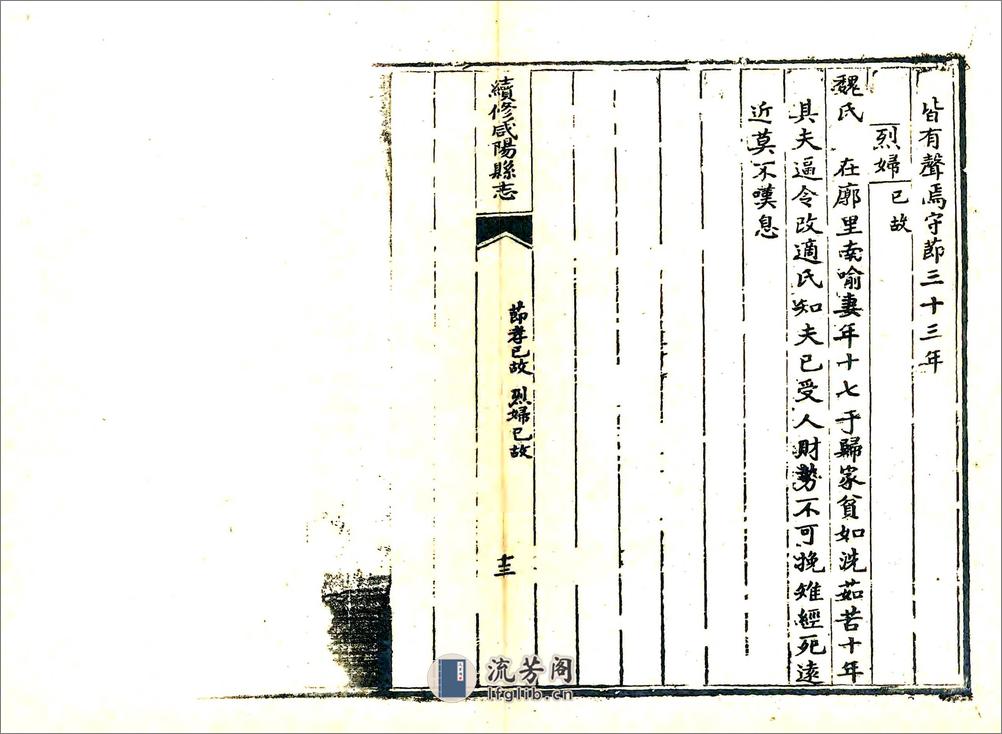 皆有聲焉守節三十三年
烈婦已故
魏氏 在廓里南喻妻年十七于歸家貧如洗茹苦十年
其夫逼令改適氏知夫已受人財勢不可挽雉經死遠
近莫不嘆息
續修咸陽縣志
節孝已故 烈婦已故
十三
流芳阁
lfglib.cn